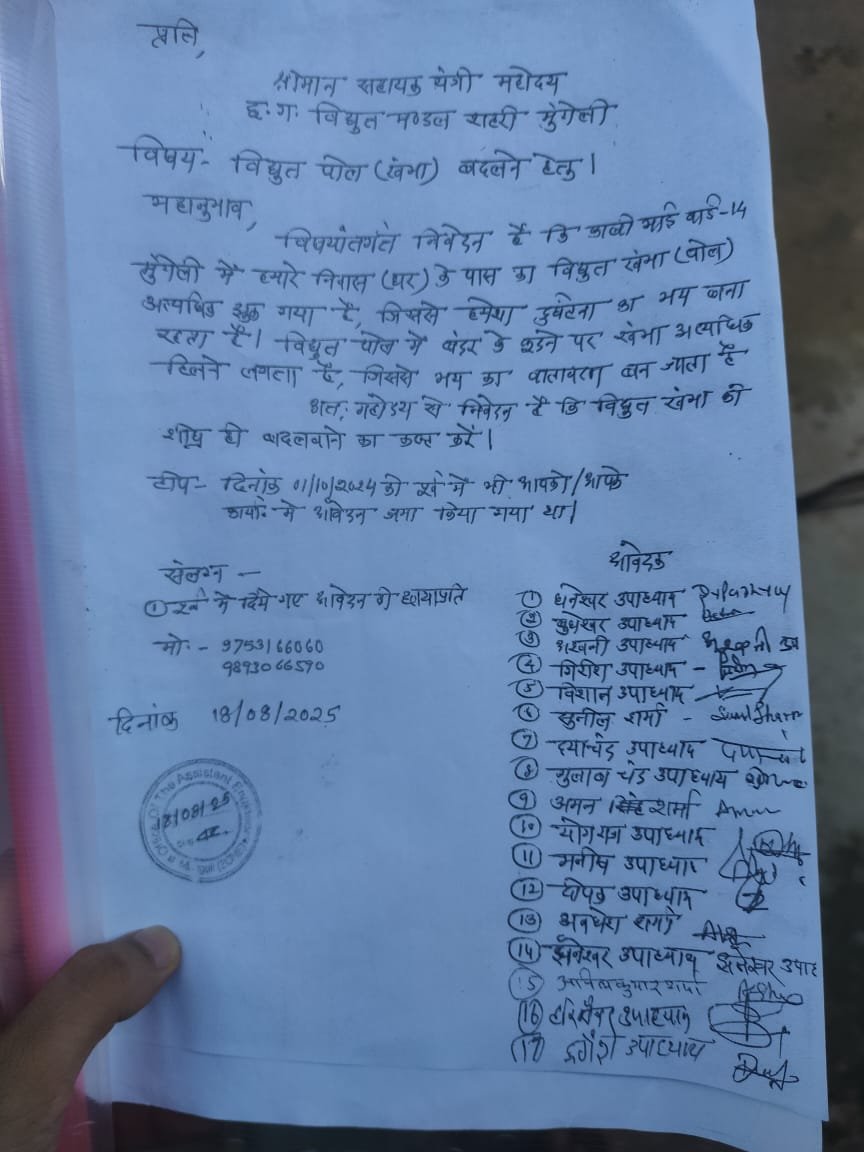 प्रति,
श्रीमान सहायक यंत्री महोदय
छ. ग. विद्युत मण्डल शहरी मुंगेली
विषय - विद्युत पोल (खंभा) बदलने हेतु।
महानुभाव,
विषयांतर्गत निवेदन है कि काली माई वार्ड-14
मुंगेली में हमारे निवास (घर) के पास का विद्युत खंभा (पोल)
अत्यधिक झुक गया है, जिससे हमेशा दुर्घटना का भय बना
रहता है। विद्युत पोल में बंदर के कूदने पर खंभा अत्यधिक
हिलने लगता है, जिससे भय का वातावरण बन जाता है
अतः महोदय से निवेदन है कि विद्युत खंभा को
शीघ्र ही बदलवाने का कष्ट करें।
टीप - दिनांक 01/10/2024 को पूर्व में भी आपको/आपके
कार्या. में आवेदन जमा किया गया था।
संलग्न -
① पूर्व में दिये गए आवेदन की छायाप्रति
मो. - 9753166060
9893066590
दिनांक 18/08/2025
Office Of The Assistant Engineer
18/08/25
आवेदक
① धनेश्वर उपाध्याय
② बुधेश्वर उपाध्याय
③ अश्वनी उपाध्याय
④ गिरीश उपाध्याय -
⑤ विशाल उपाध्याय
⑥ सुनील शर्मा - Sunil Sharma
⑦ दयाचंद उपाध्याय
⑧ गुलाब चंद उपाध्याय
⑨ अमन शर्मा Aman
⑩ योगराज उपाध्याय
⑪ मनीष उपाध्याय
⑫ दीपक उपाध्याय
⑬ अवधेश शर्मा
⑭ उपाध्याय
⑮ शर्मा
⑯ उपाध्याय
⑰ दुर्गेश उपाध्याय